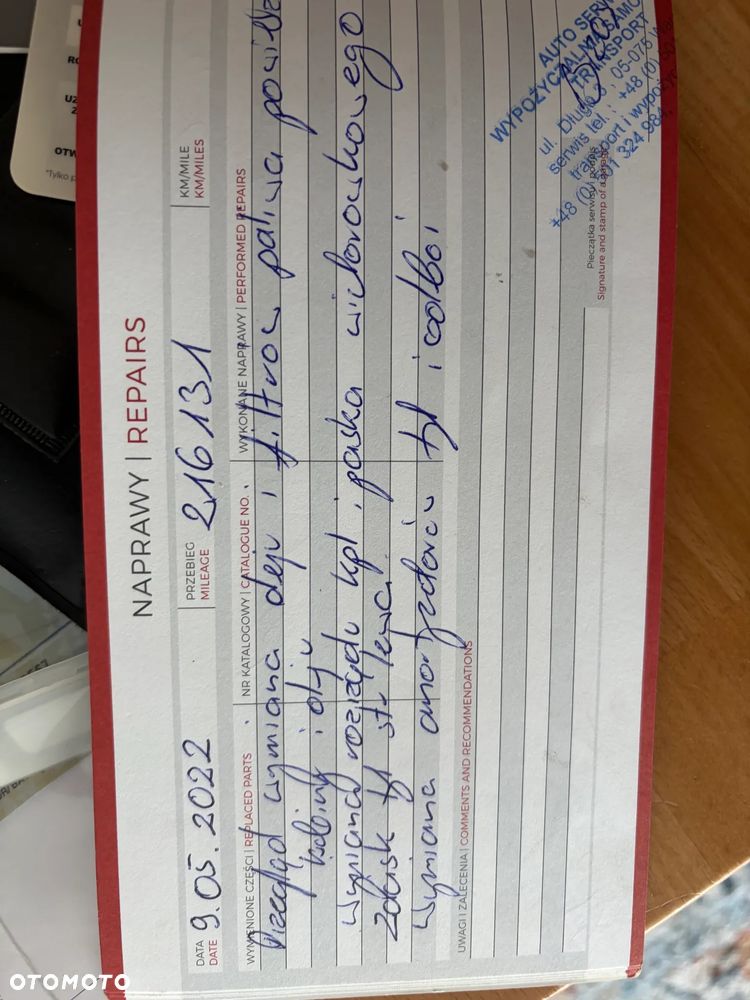 NAPRAWY | REPAIRS
DATA
DATE
9.05.2022
PRZEBIEG
MILEAGE
216131
KM/MILE
KM/MILES
WYMIENIONE CZĘŚCI | REPLACED PARTS
NR KATALOGOWY | CATALOGUE NO.
WYKONANE NAPRAWY | PERFORMED REPAIRS
Przegląd wymiana oleju i filtrów paliwa
kabiny i oleju
Wymiana rozrządu kpl i paska wielorowkowego
Zacisk tył str lewa
Wymiana amortyzatorów tył i odboi
UWAGI I ZALECENIA | COMMENTS AND RECOMMENDATIONS
AUTO SERW
WYPOŻYCZALNIA SAMO
TRANSPORT
ul. Długa 05-075
serwis tel.: +48 (0)
transport i wypoży
+48 (0) 324 984
Pieczątka serwisu i podpis
Signature and stamp of a garage
OTW
*Tylko p
OTOMOTO